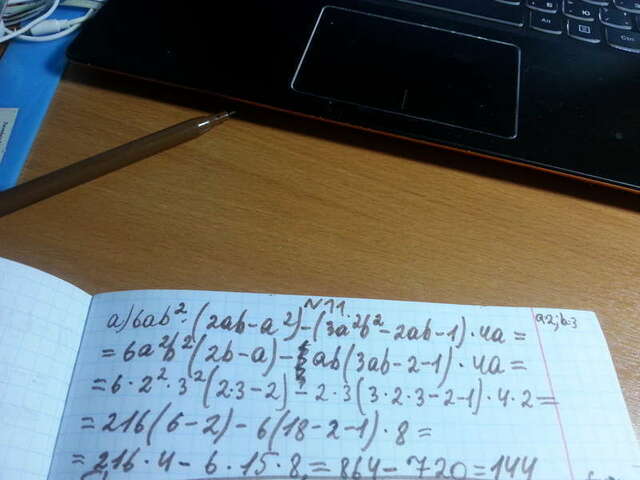 N11.
a) 6ab²·(2ab-a²)-(3a²b²-2ab-1)·4a= a=2; b=3
=6a²b²(2b-a)-ab(3ab-2-1)·4a=
=6·2²·3²(2·3-2)-2·3(3·2·3-2-1)·4·2=
=216(6-2)-6(18-2-1)·8=
=216·4-6·15·8=864-720=144
Alt
Ctrl